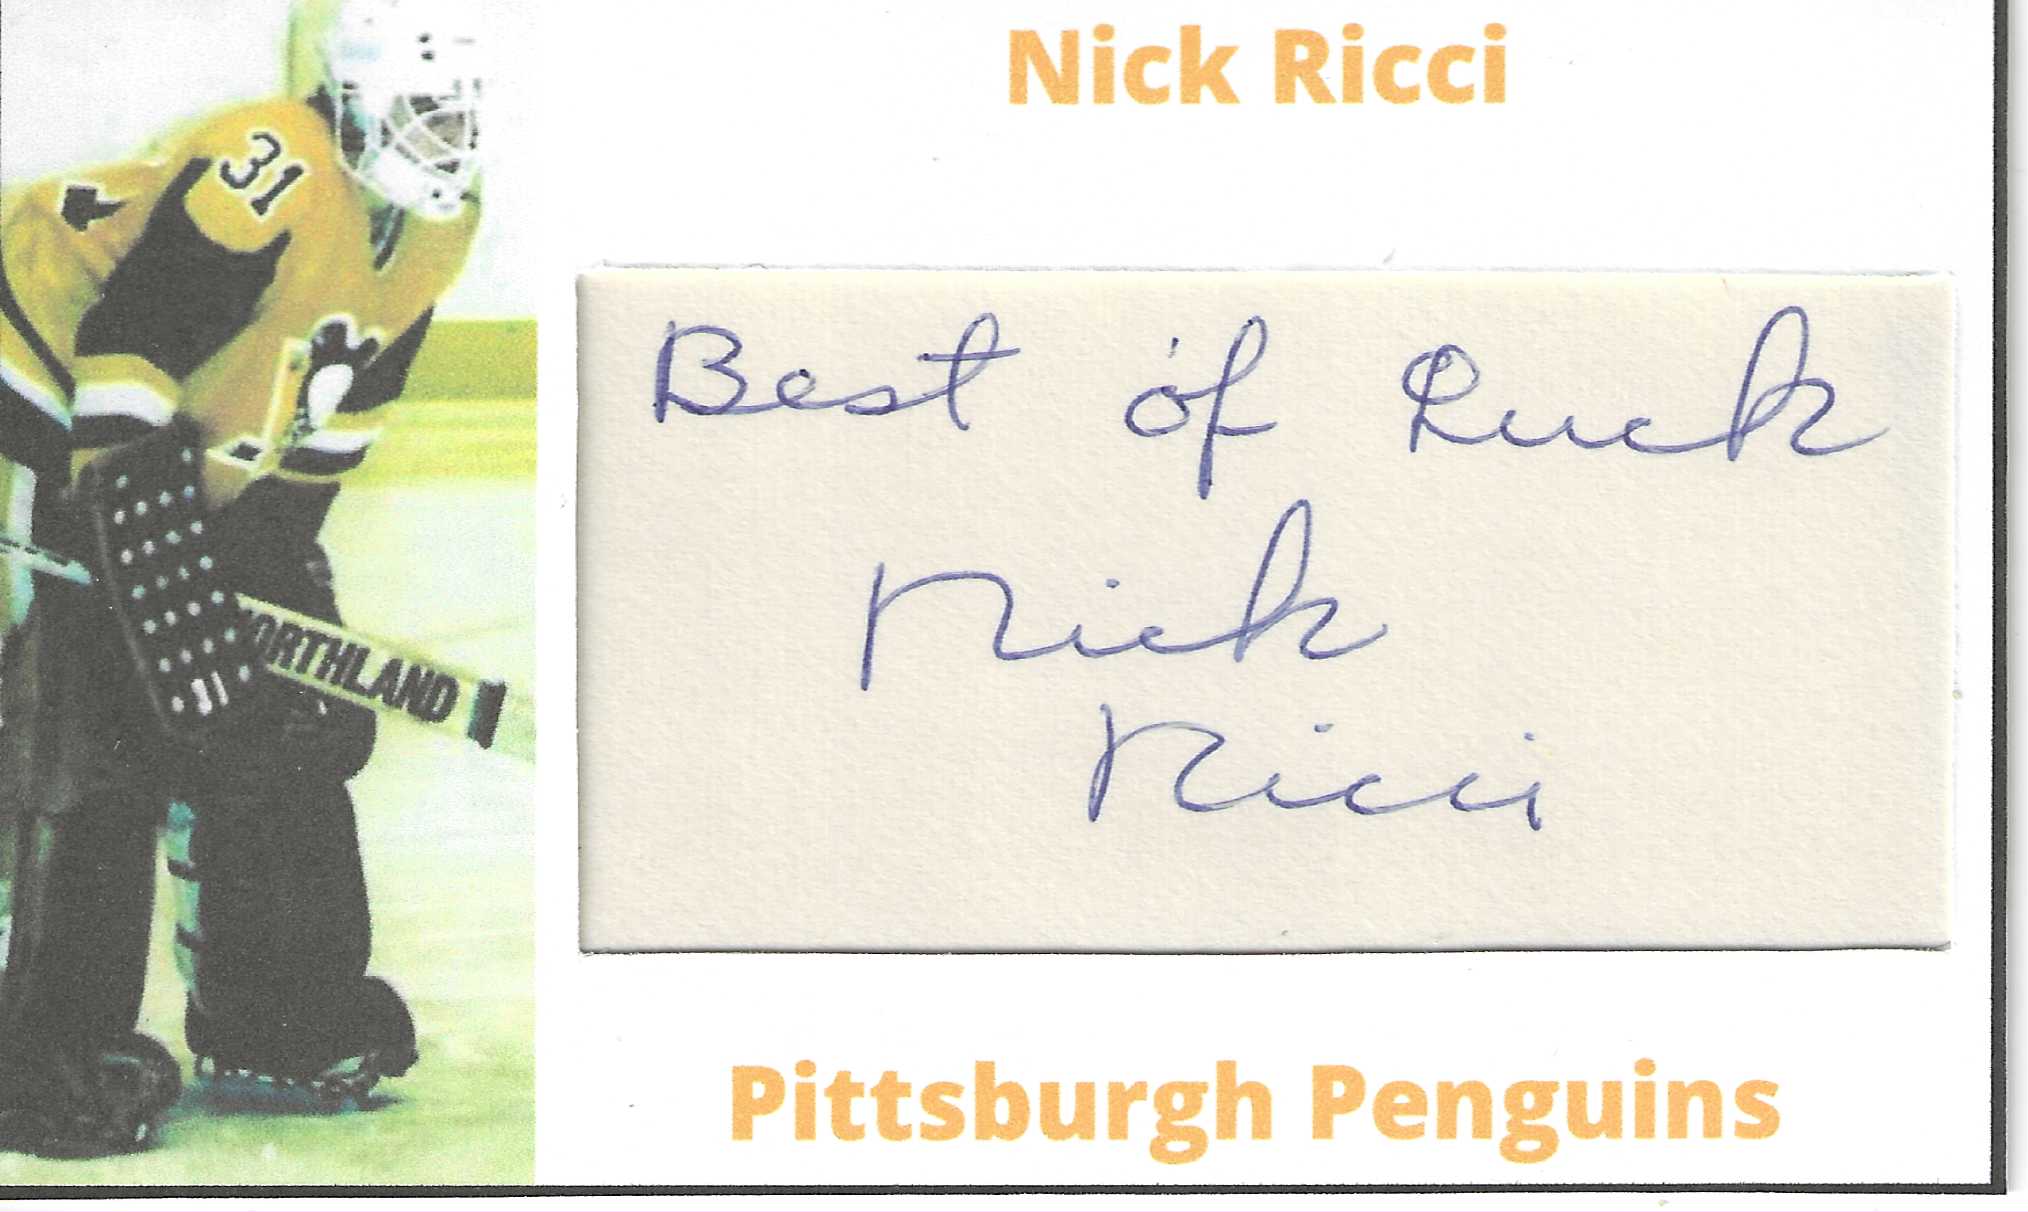 Nick Ricci
31
Best of Luck
Nick
Ricci
NORTHLAND
Pittsburgh Penguins